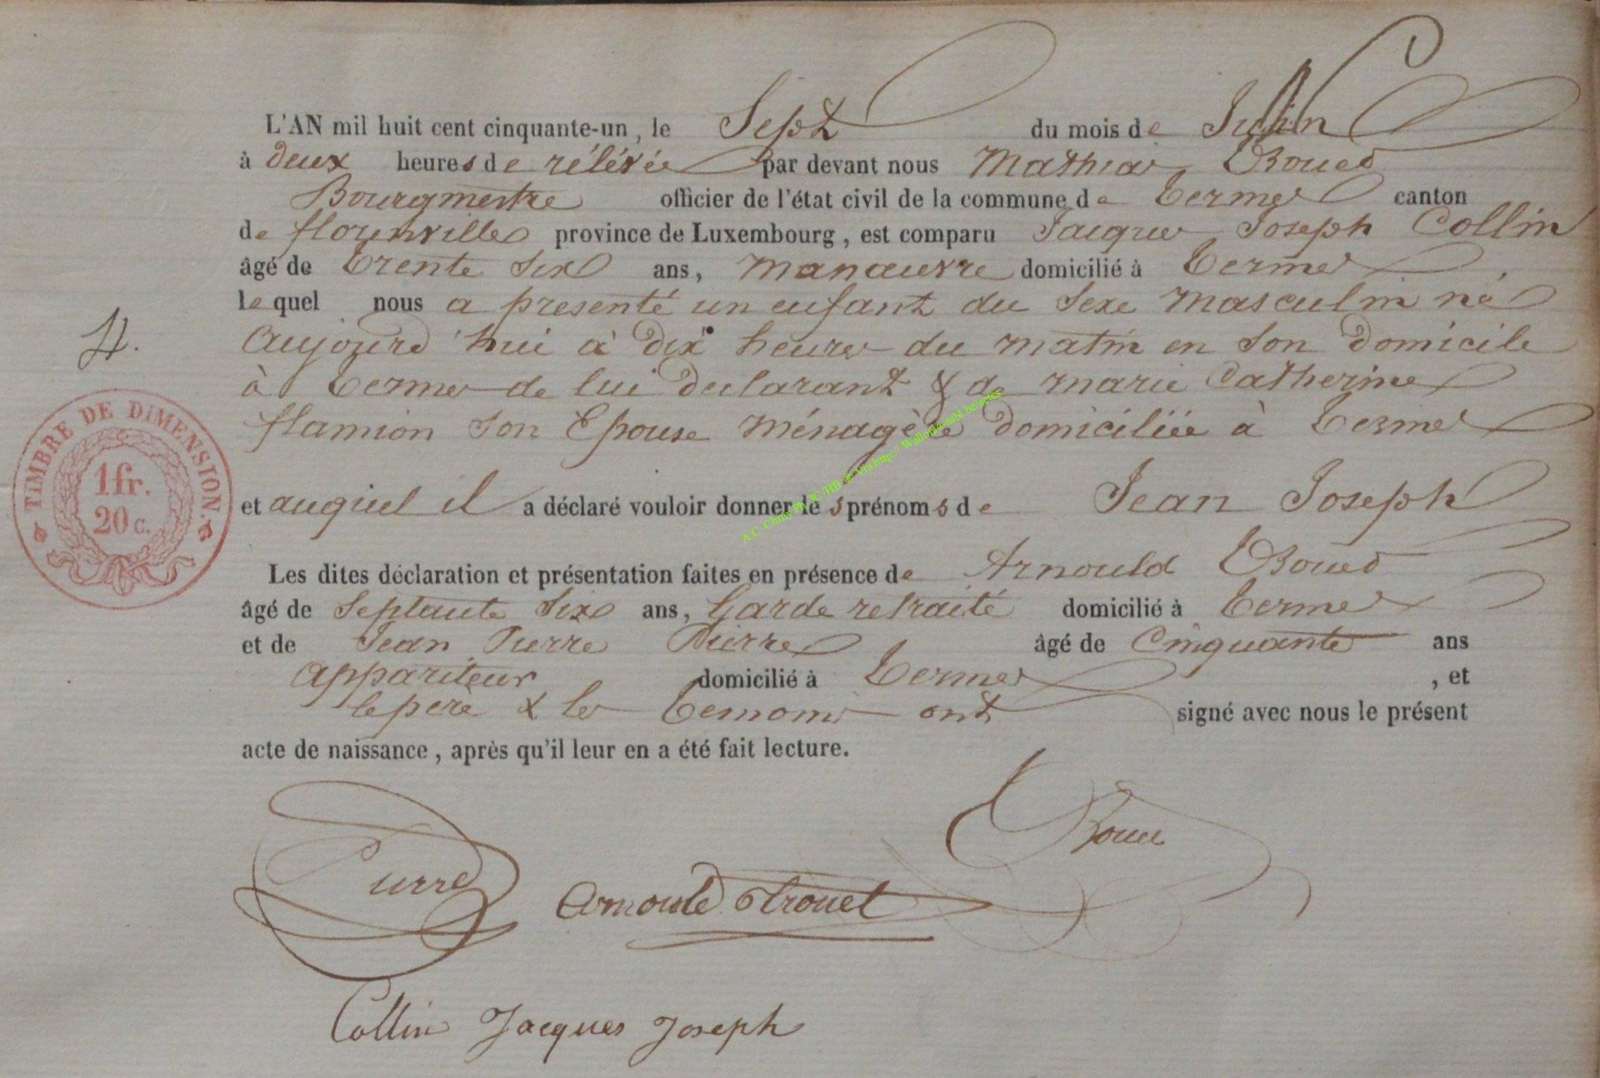 L'AN mil huit cent cinquante-un, le Sept du mois de
à deux heures de rélévée par devant nous Mathias
Bourgmestre officier de l'état civil de la commune de Termes canton
de florenville province de Luxembourg, est comparu Jacques Joseph Collin
âgé de trente Six ans, manœuvre domicilié à Termes
lequel nous a presenté un enfant du Sexe masculin né
aujourd'hui à dix heures du matin en Son domicile
à Termes de lui declarant & de marie Catherine
flamion Son Epouse Ménagère domiciliée à Termes
TIMBRE DE DIMENSION.
1fr.
20 c.
et auquel il a déclaré vouloir donner les prénoms de Jean Joseph
Les dites déclaration et présentation faites en présence de Arnould
âgé de Septante Six ans, Garde retraité domicilié à Termes
et de Jean Pierre Pierre âgé de Cinquante ans
appariteur domicilié à Termes, et
le père & les temoins ont signé avec nous le présent
acte de naissance, après qu'il leur en a été fait lecture.
Pierre
Arnould
Collin Jacques Joseph